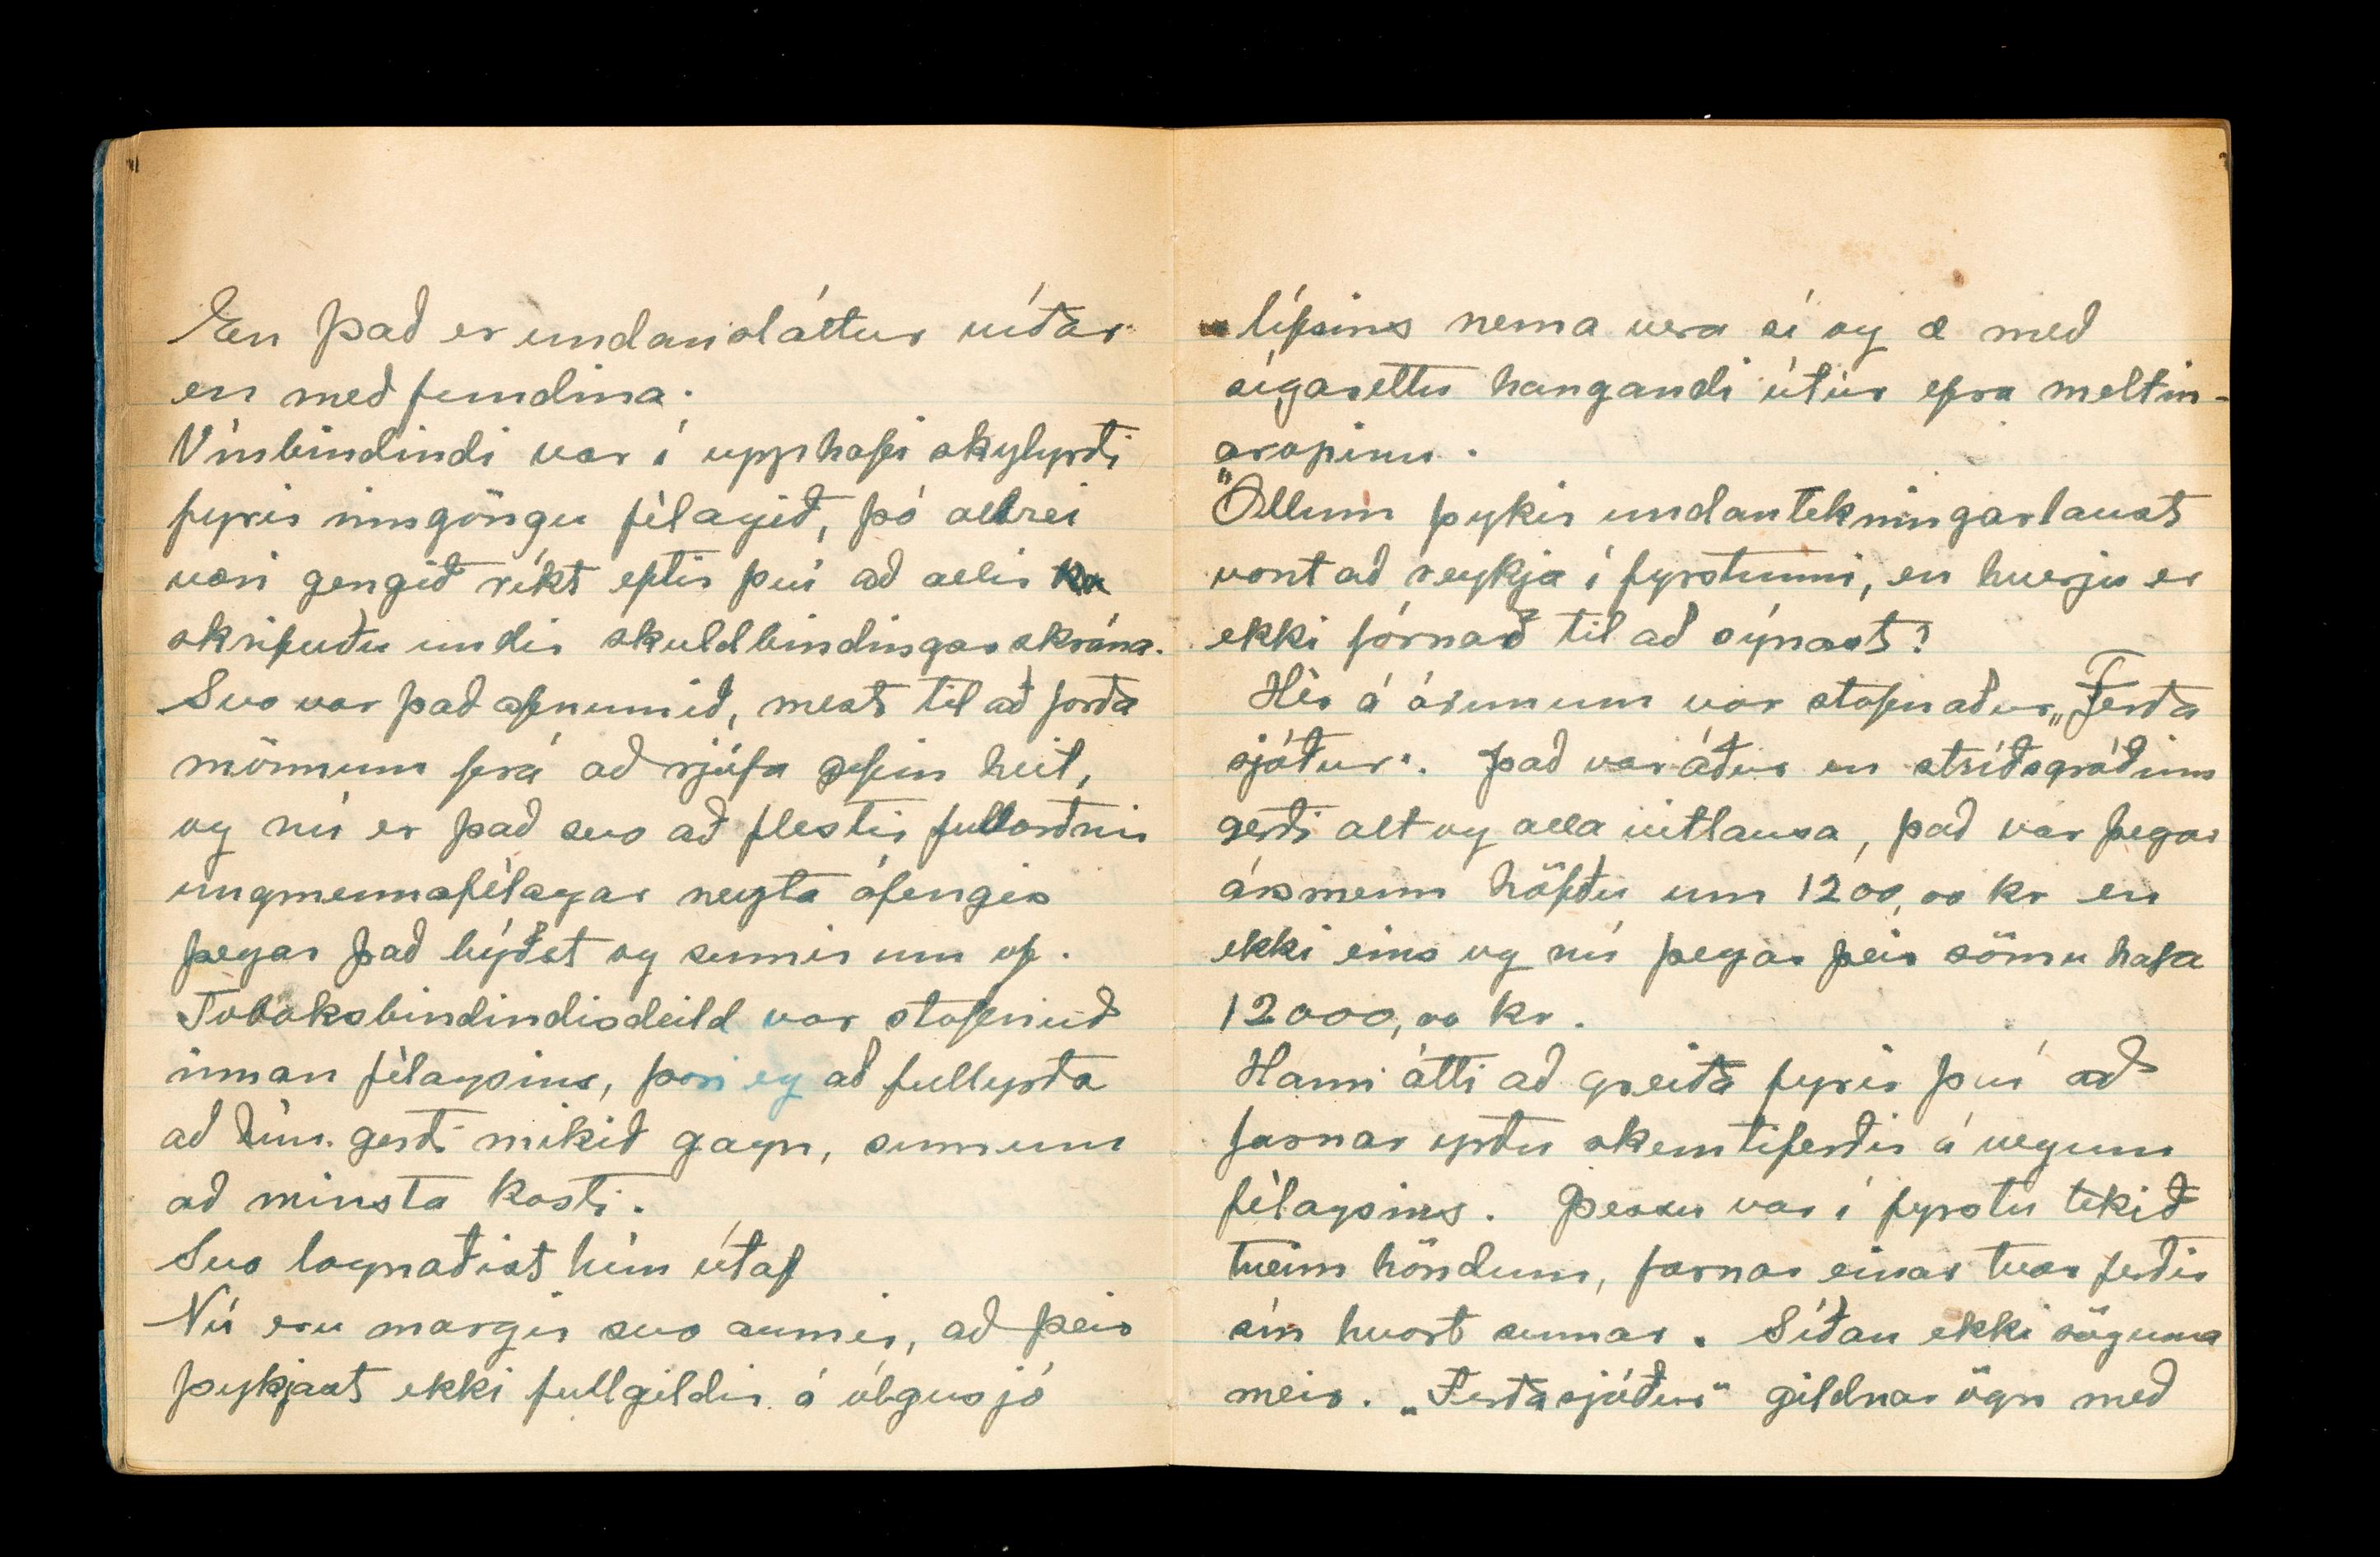 En það er undansláttur víðar
en með fundina.
Vínbindindi var í upphafi skylyrði
fyrir inngöngu félagið, þó aldrei
væri gengið ríkt eftir því að allir
skrifuðu undir skuldbindingarskrána.
Svo var það afnumið, mest til að forða
mönnum frá að rjúfa gefin heit,
og nú er það svo að flestir fullorðnir
ungmennafélagar neyta áfengis
þegar það býðst og sumir um of.
Tobaksbindindisdeild var stofnuð
innan félagsins, þori eg að fullyrða
að hún gerði mikið gagn, sumum
að minsta kosti.
Svo lognaðist hún útaf
Nú eru margir svo aumir, að þeir
þykjast ekki fullgildir á ólgusjó
lífsins nema vera sí og æ með
sígarettu hangandi útúr efra meltin-
aropinu.
Öllum þykir undantekningarlaust
vont að reykja í fyrstunni, en hverju er
ekki fórnað til að sýnast?
Hér á árunum var stofnaður „Ferða
sjóður". Það var áður en stríðsgróðinn
gerði alt og alla vitlausa, það var þegar
ársmenn höfðu um 1200,00 kr en
ekki eins og nú þegar þeir sömu hafa
12000,00 kr.
Hann átti að greiða fyrir því að
farnar yrðu skemtiferðir á vegum
félagsins. Þessu var í fyrstu tekið
tveim höndum, farnar einar tvær ferðir
sín hvort sumar. Síðan ekki söguna
meir. „Ferðasjóður" gildnar ögn með